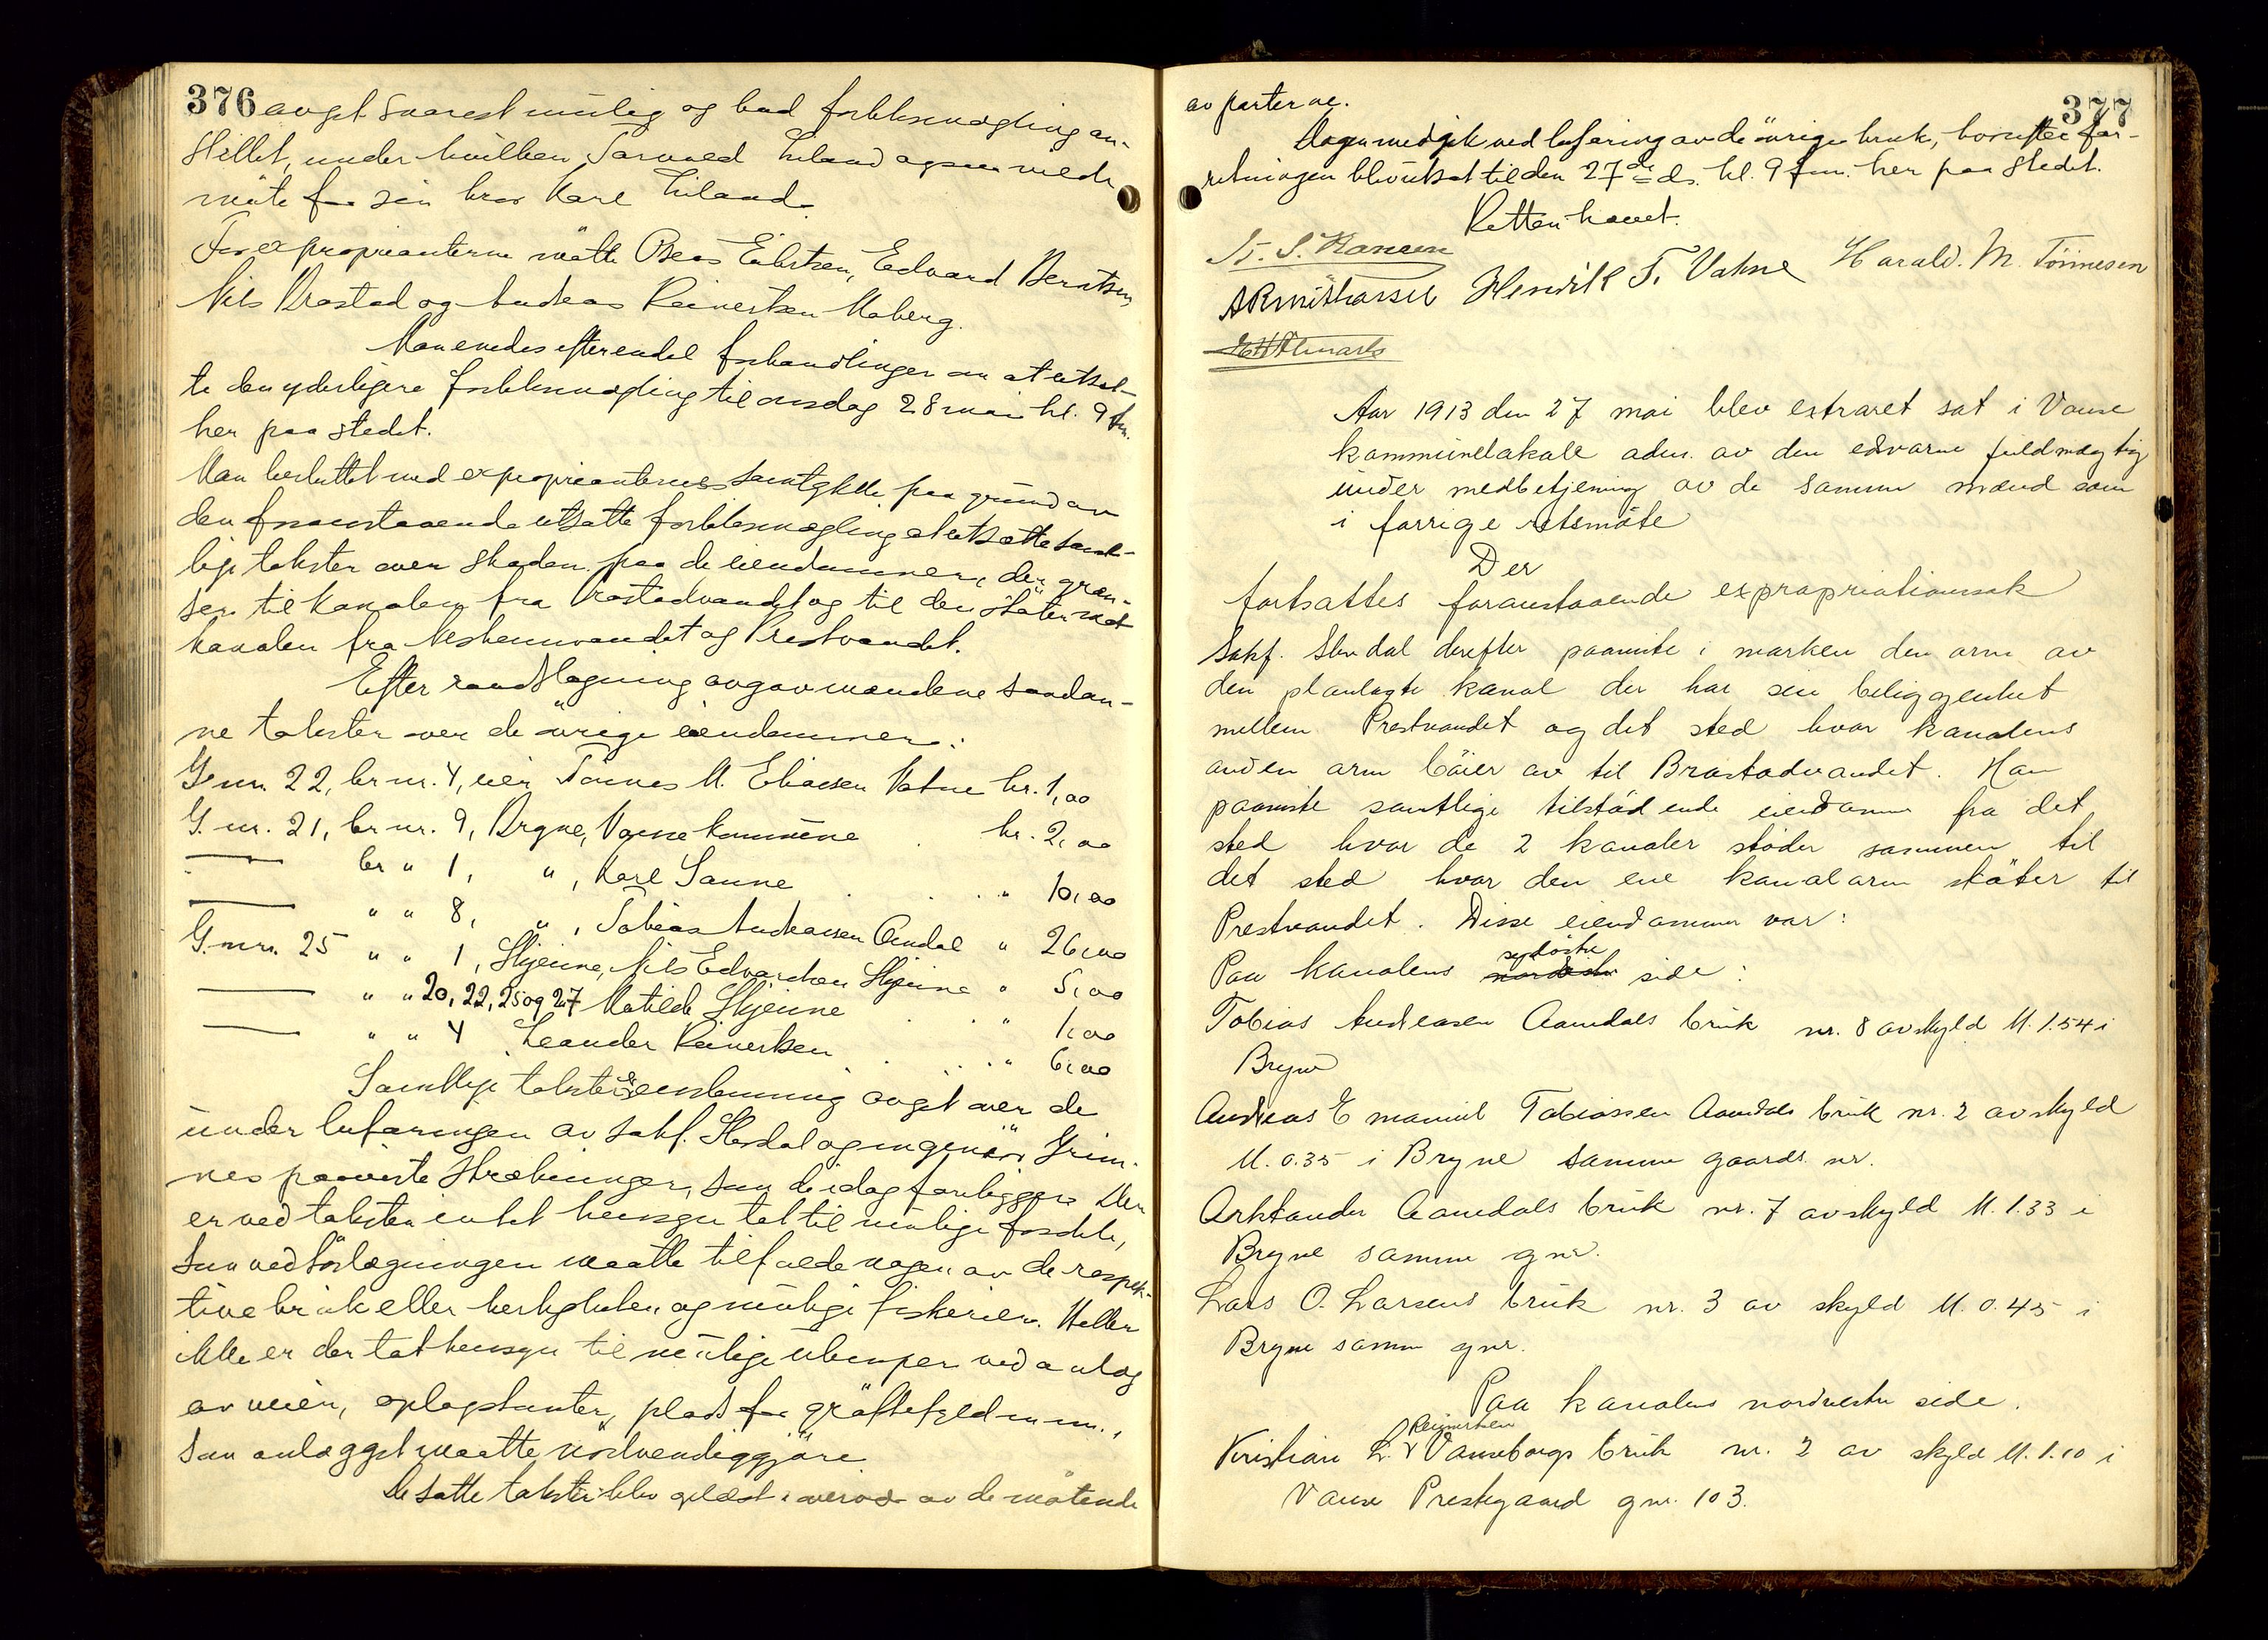 376 avgit svarest mulig og bad forlikmægling an-
stillet, under hvilken Torvald Eiland ogsaa vilde
møte for sin bror Karl Eiland.
For exproprianterne møtte Beas Eilertsen, Edvard Berntsen,
Nils Brastad og Andreas Reinertsen Moberg.
Man enedes efter endel forhandlinger om at utsæt-
te den yderligere forliksmægling til onsdag 28 mai kl. 9 fm.
her paa stedet.
Man besluttet med exproprianternes samtykke paa grund av
den foranstaaende utsatte forliksmægling at utsætte samt-
lige takster over skaden paa de eiendommer, der græn-
ser til kanalen fra Brastadvandet og til den støter mot
kanalen fra Neshemvandet og Prestvandet.
Efter raadslagning avgav mændene saadan-
ne takster over de øvrige eiendommer:
G. nr. 22, br nr. 4, eier Tønnes M. Eliasen Vatne kr. 1,00
G. nr. 21, br nr. 9, Brgne, Vanse kommune kr. 2,00
br " 1, ", Karl Sanne " 10,00
" " 8, ", Tobias Andreasen Omdal " 26,00
G. nr. 25 " " 1, Skjeine, Nils Edvardsen Skjeine " 5,00
" " 20, 22, 25 og 27 Matilde Skjeine " 1,00
" " 4 Leander Reinertsen " 6,00
Samtlige takster enstemmig avgit over de
under befaringen av sakf. Stendal og ingeniør Grim-
nes paaviste strækninger, som de idag foreligger. Der
er ved taksten intet hensyn tat til mulige fordele,
som ved tørlægningen maatte tilfalde nogen av de respek-
tive bruk eller herligheter og mulige fiskerier. Heller
ikke er der tat hensyn til mulige ulemper ved anlæg
av veier, oplagstomter, plads for grøftefyld m. m.,
som anlægget maatte nødvendiggjøre
De satte takster blev oplæst i overvær av de møtende
377
av parterne.
Dagen medgik ved befaring av de øvrige bruk, hvorefter for-
retningen blev utsat til den 27de ds. kl. 9 fm. her paa stedet.
Retten hævet.
S. Hansen
Henrik T. Vatne Harald. M. Tönnesen
Aar 1913 den 27 mai blev extraret sat i Vanse
kommunelokale adm. av den edsvorne fuldmægtig
under medbetjening av de samme mænd som
i forrige retsmøte
Der
fortsattes foranstaaende expropriationssak
Sakf. Stendal derefter paaviste i marken den arm av
den planlagte kanal der har sin beliggenhet
mellem Prestvandet og det sted hvor kanalens
anden arm bøier av til Brastadvandet. Han
paaviste samtlige tilstødende eiendomme fra det
sted hvor de 2 kanaler støder sammen til
det sted hvor den ene kanalarm støter til
Prestvandet. Disse eiendommer var:
sydøstre
Paa kanalens nordøstre side:
Tobias Andreasen Aamdals bruk nr. 8 avskyld M. 1.54 i
Bryne
Andreas Emanuel Tobiassen Aamdals bruk nr. 2 avskyld
M. 0.35 i Bryne samme gaards nr.
Arktander Aamdals bruk nr. 7 avskyld M. 1.33 i
Bryne samme gnr.
Lars O. Larsens bruk nr. 3 av skyld M. 0.45 i
Bryne samme gnr.
Paa kanalens nordvestre side.
Reinertsen
Kristian L. Vanseborgs bruk nr. 2 av skyld M. 1.10 i
Vanse Prestegaard gnr. 103.